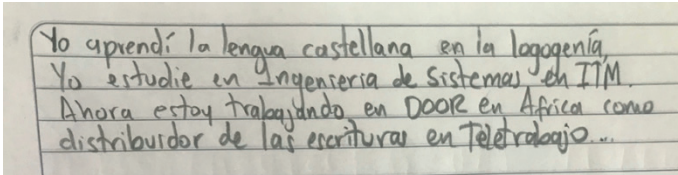 Yo aprendí la lengua castellana en la logogenía,
Yo estudie en Ingenieria de Sistemas en ITM.
Ahora estoy trabajando en DOOR en Africa como
distribuidor de las escrituras en Teletrabajo...